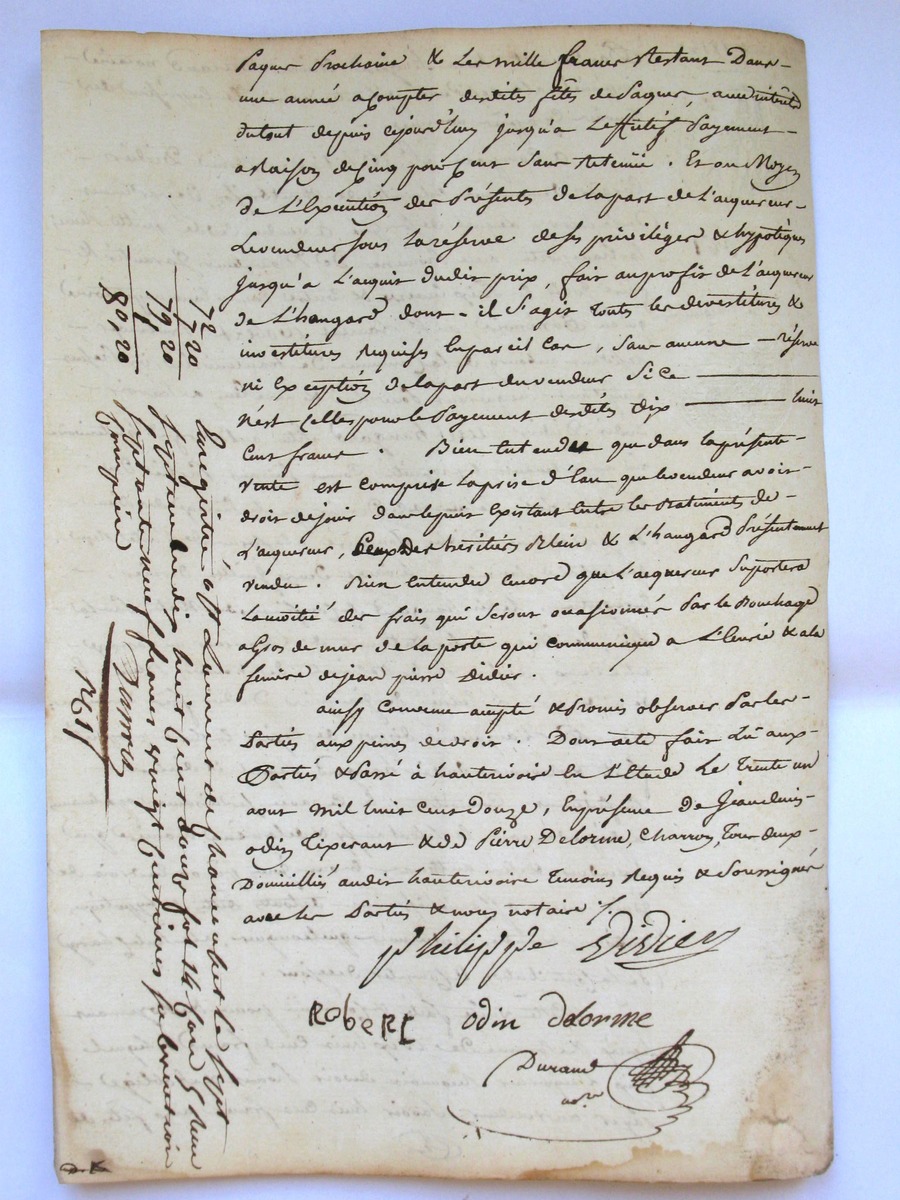 Paques Prochaine & Les mille francs Restant Dans
une année a Compter desdites fêtes de Paques, avec intérêts
dutout depuis cejourd'huy jusqu'a Leffectif Payement
a Raison de Cinq pour Cent Sans Retenüe. Et au Moyen
de L'Execution des Présentes de la part de L'acquereur
Levendeur sous La réserve de ses priviléges & hypotèques
jusqu'a L'acquit dudit prix, fait au profit de L'acquereur
de L'hangard dont il S'agit Toutes les devestitures &
investitures Requises En pareil Cas, Sans aucune réserve
ni Exception de la part du vendeur Si Ce
n'est Celles pour le Payement desdits dix huit
Cent francs. Bien Entendu que dans la présente
vente est Comprise La prise d'Eau que levendeur avoit
droit de jouir dans le puit Existant Entre les Batiments de
L'acquereur, Ceux des hésitiers Pleine & L'hangard Présentement
vendu. Bien Entendu Encore que L'acquereur Suportera
La moitié des frais qui Seront occasionnés Par le Bouchage
a Gros de mur de la porte qui Communique a L'Ecurie & a la
feniere de jean pierre Didier.
ainsy Convenu accepté & Promis observer Par les
Parties aux peines de droit. Dont acte fait Lû aux
Parties & Passé à hauterivoire En L'Etude Le Trente un
aout Mil huit Cent Douze, En présence de Jean Louis
odin Tixerant & de Pierre Delorme, Charron, Tous deux
Domiciliés audit hauterivoire Temoins Requis & Soussignés
avec les Parties & nous notaire /.
philippe Didier
Robert odin delorme
Durand
nore
72
7 20
79, 20
80, 20
Enregistré à St Laurent de Chamousset le sept
septembre dix huit cent douze fol 14 Case 5 Reçu
septante neuf francs vingt centimes subvention
Comprise